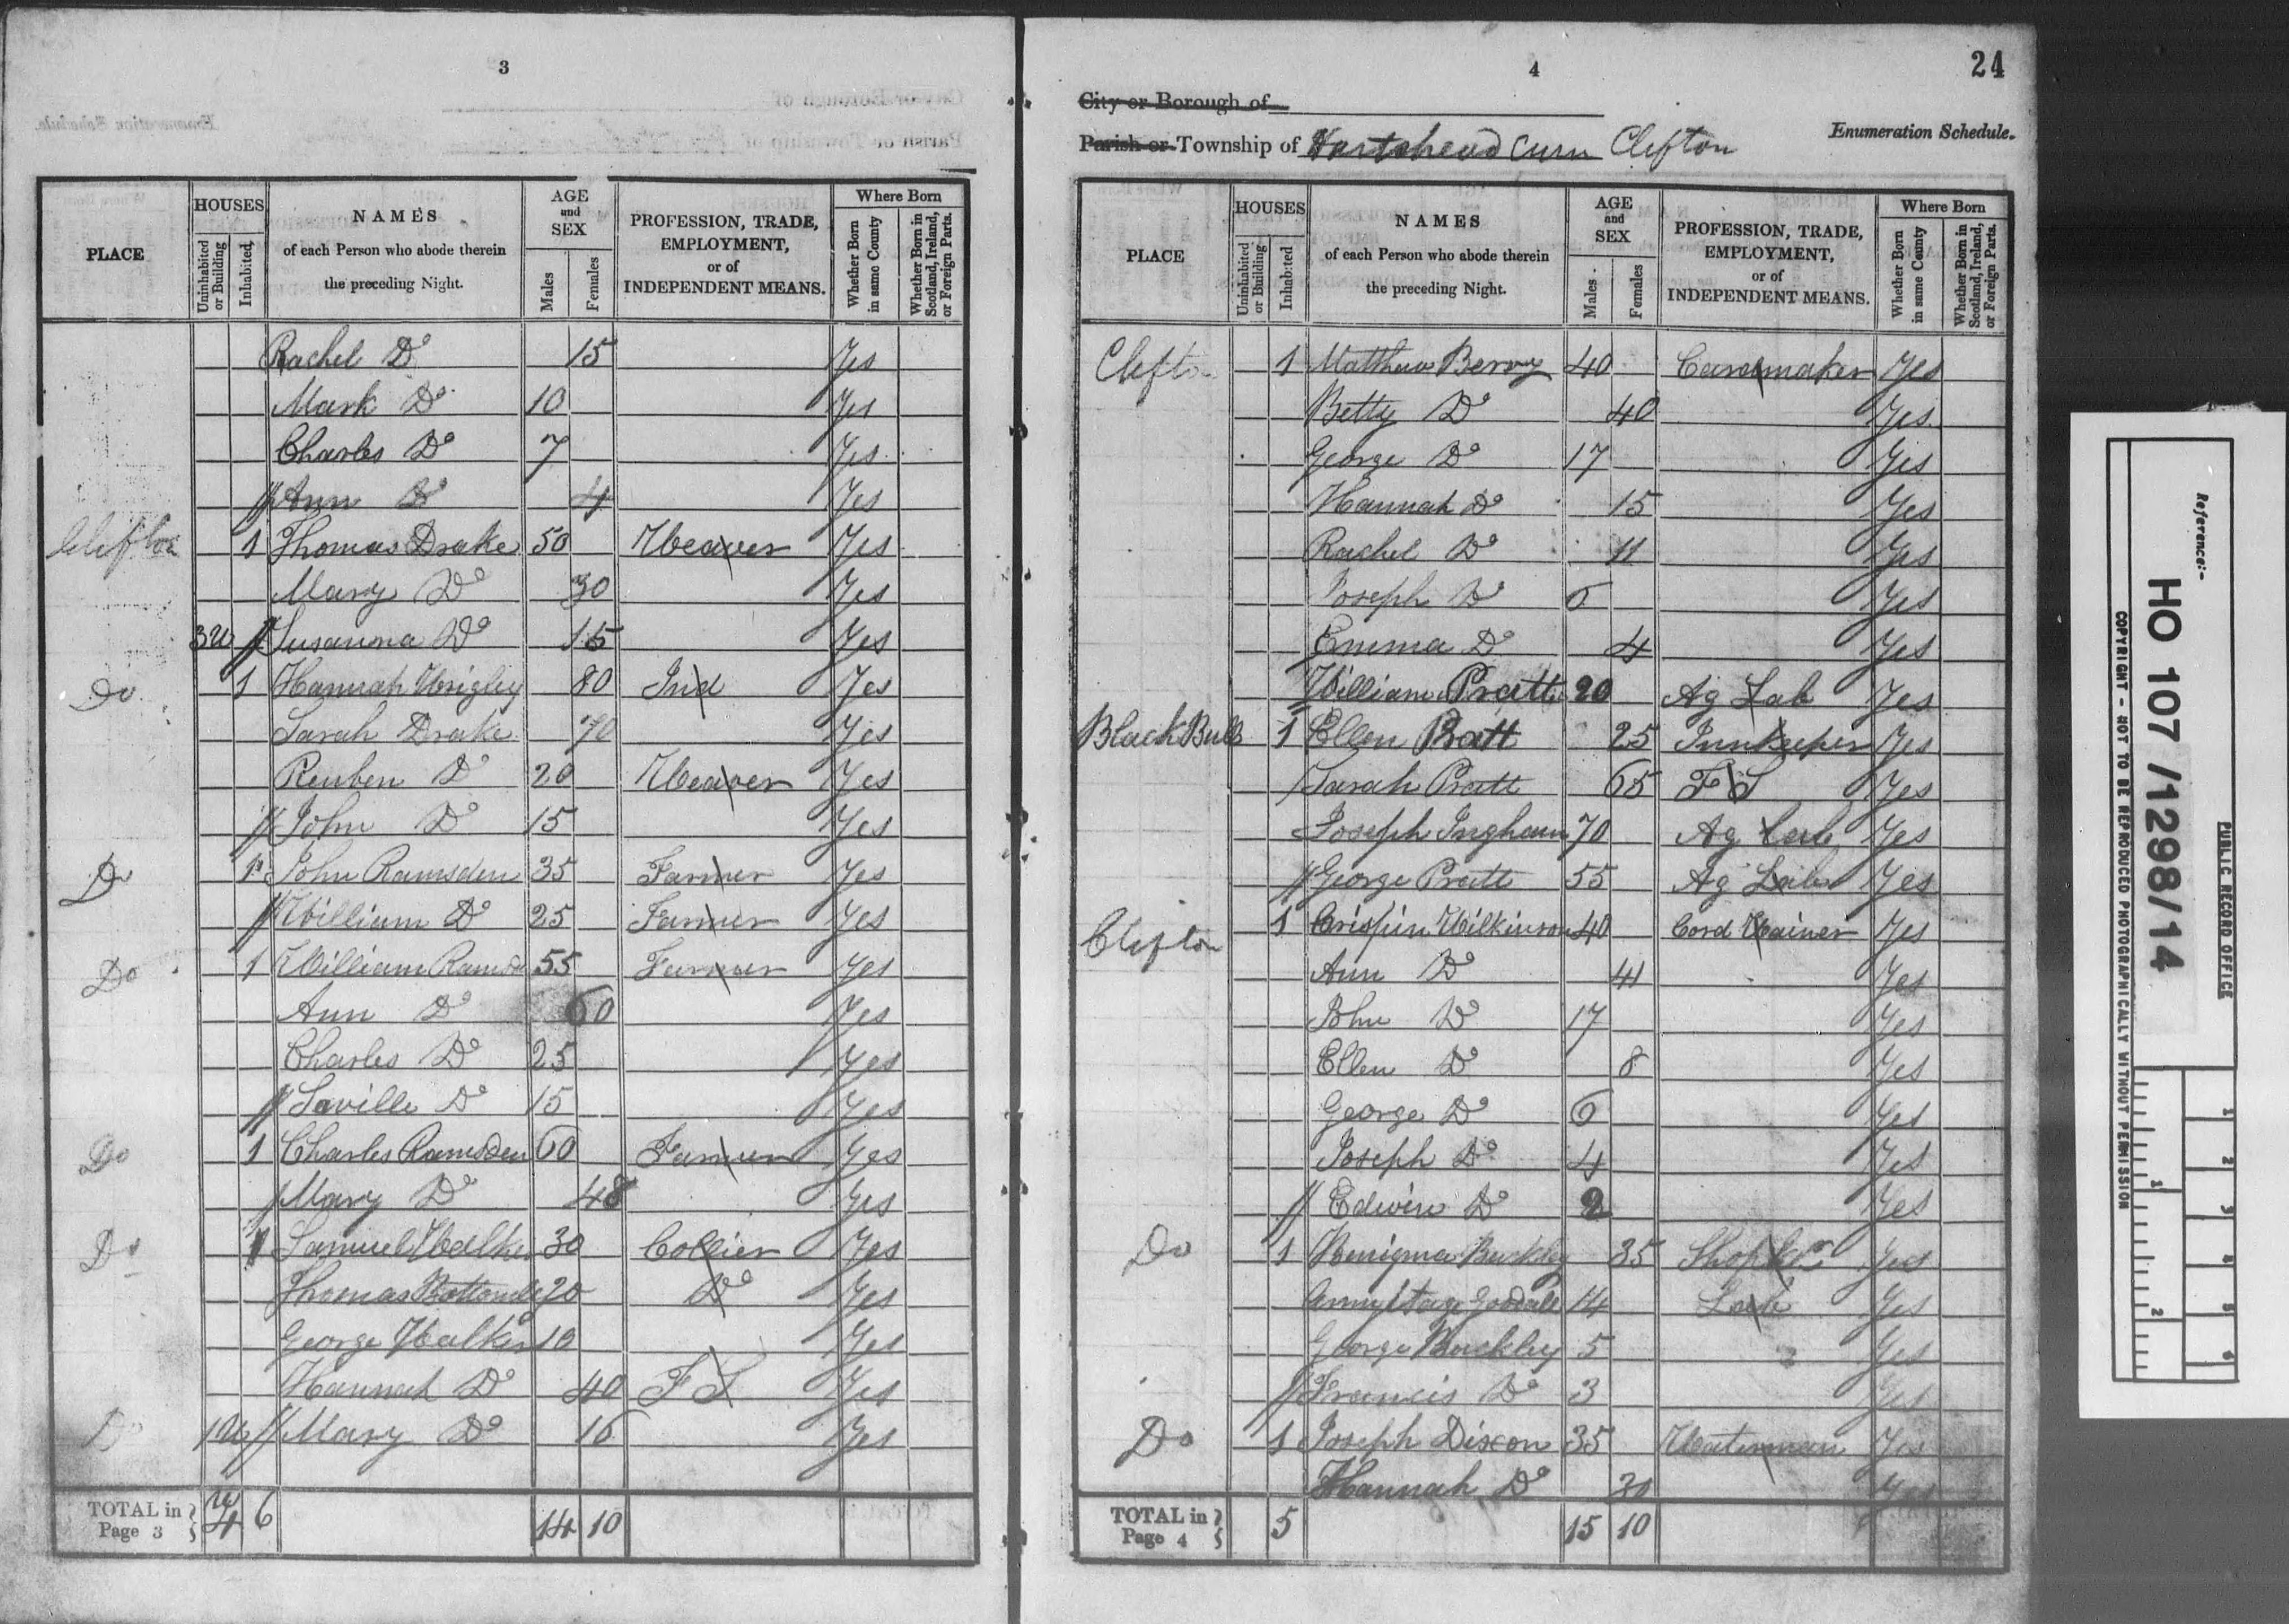 3
PLACE
HOUSES
Uninhabited or Building
Inhabited
NAMES
of each Person who abode therein
the preceding Night.
AGE
and
SEX
Males
Females
PROFESSION, TRADE,
EMPLOYMENT,
or of
INDEPENDENT MEANS.
Where Born
Whether Born in same County
Whether Born in Scotland, Ireland, or Foreign Parts.
Rachel Do 15 Yes
Mark Do 10 Yes
Charles Do 7 Yes
Ann Do 4 Yes
Clifton 1 Thomas Drake 50 Weaver Yes
Mary Do 30 Yes
3U Susanna Do 15 Yes
Do 1 Hannah Wrigley 80 Ind Yes
Sarah Drake 70 Yes
Reuben Do 20 Weaver Yes
John Do 15 Yes
Do 1 John Ramsden 35 Farmer Yes
William Do 25 Farmer Yes
Do 1 William Ramsd 55 Farmer Yes
Ann Do 60 Yes
Charles Do 25 Yes
Saville Do 15 Yes
Do 1 Charles Ramsden 60 Farmer Yes
Mary Do 48 Yes
Do 1 Samuel Walker 30 Collier Yes
Thomas 20 Do Yes
George Walker 10 Yes
Hannah Do 40 F S Yes
Do 1U Mary Do 16 Yes
TOTAL in Page 3 4 6 14 10
4
24
City or Borough of
Parish or Township of Hartshead cum Clifton
Enumeration Schedule.
PLACE
HOUSES
Uninhabited or Building
Inhabited
NAMES
of each Person who abode therein
the preceding Night.
AGE
and
SEX
Males
Females
PROFESSION, TRADE,
EMPLOYMENT,
or of
INDEPENDENT MEANS.
Where Born
Whether Born in same County
Whether Born in Scotland, Ireland, or Foreign Parts.
Clifton 1 Matthew Berry 40 Cardmaker Yes
Betty Do 40 Yes
George Do 17 Yes
Hannah Do 15 Yes
Rachel Do 11 Yes
Joseph Do 6 Yes
Emma Do 4 Yes
William Pratt 20 Ag Lab Yes
Black Bull 1 Ellen Pratt 25 Innkeeper Yes
Sarah Pratt 65 F S Yes
Joseph Ingham 70 Ag Lab Yes
George Pratt 55 Ag Lab Yes
Clifton 1 Crispin Wilkinson 40 Cord Wainer Yes
Ann Do 41 Yes
John Do 17 Yes
Ellen Do 8 Yes
George Do 6 Yes
Joseph Do 4 Yes
Edwin Do 2 Yes
Do 1 Buckley 35 Shop kr Yes
Armytage Goodall 14 Yes
George Buckley 5 Yes
Francis Do 3 Yes
Do 1 Joseph Dixon 35 Waterman Yes
Hannah Do 30 Yes
TOTAL in Page 4 5 15 10
PUBLIC RECORD OFFICE
Reference:-
HO 107/1298/14
COPYRIGHT - NOT TO BE REPRODUCED PHOTOGRAPHICALLY WITHOUT PERMISSION
1 2 3 4 5 6
1 2